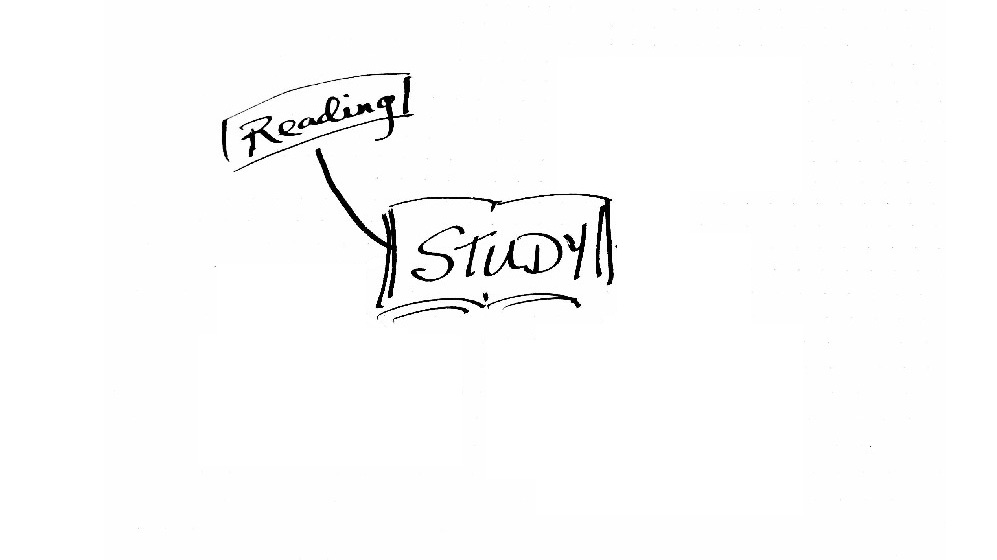 Reading
STUDY